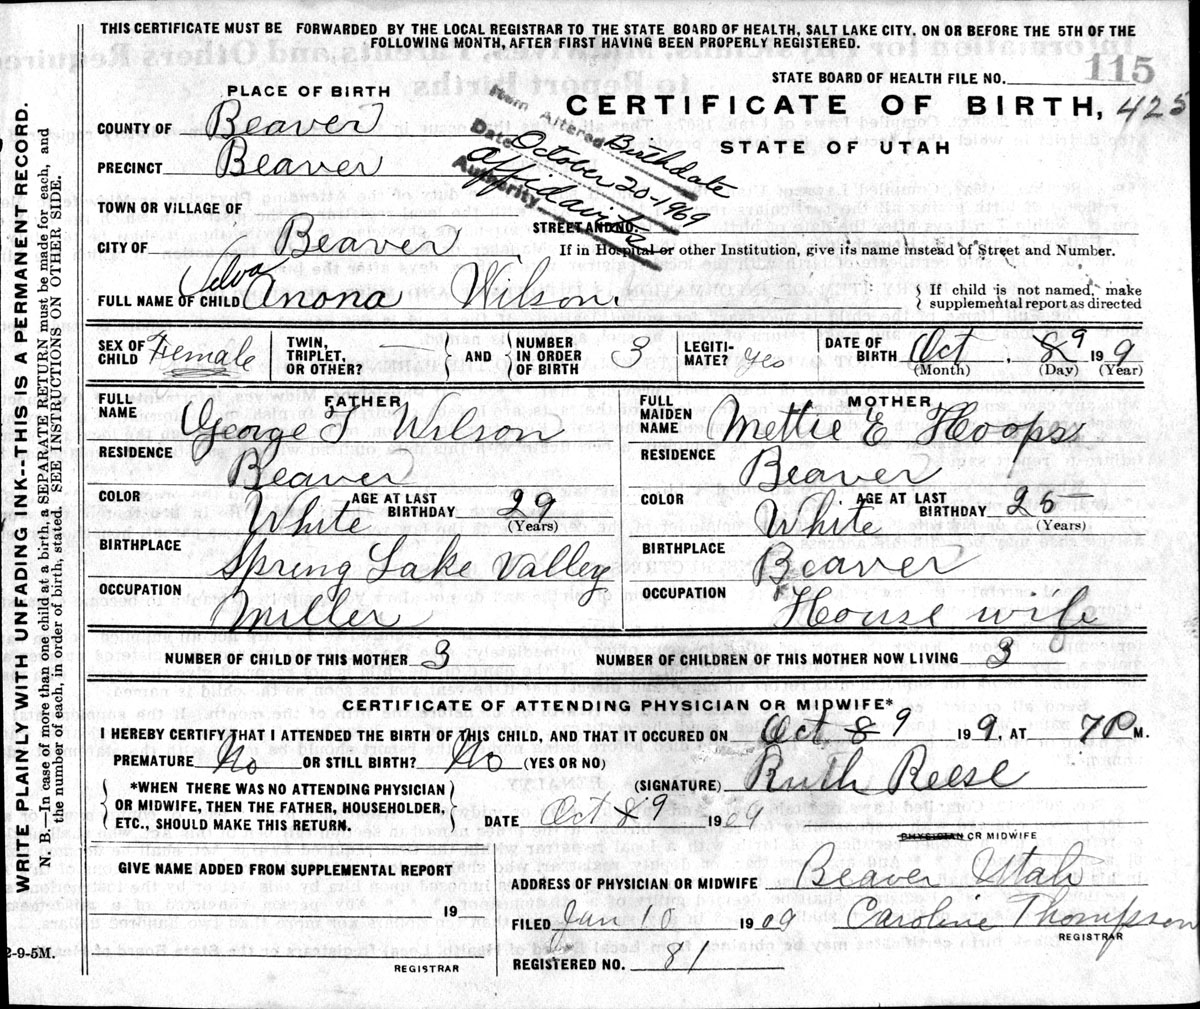 THIS CERTIFICATE MUST BE FORWARDED BY THE LOCAL REGISTRAR TO THE STATE BOARD OF HEALTH, SALT LAKE CITY, ON OR BEFORE THE 5TH OF THE
FOLLOWING MONTH, AFTER FIRST HAVING BEEN PROPERLY REGISTERED.
STATE BOARD OF HEALTH FILE NO. 115
PLACE OF BIRTH
CERTIFICATE OF BIRTH, 425
STATE OF UTAH
COUNTY OF Beaver
PRECINCT Beaver
Item Altered Birthdate
Date October 20-1969
Authority Affidavits
TOWN OR VILLAGE OF
STREET AND NO.
CITY OF Beaver
If in Hospital or other Institution, give its name instead of Street and Number.
Elva
FULL NAME OF CHILD Anona Wilson
If child is not named, make
supplemental report as directed
SEX OF CHILD Female
TWIN, TRIPLET, OR OTHER? — AND NUMBER, IN ORDER OF BIRTH 3
LEGITI-MATE? yes
DATE OF BIRTH Oct 8 9 19 9
(Month) (Day) (Year)
FATHER
FULL NAME George T Wilson
RESIDENCE Beaver
COLOR White AGE AT LAST BIRTHDAY 29
(Years)
BIRTHPLACE Spring Lake Valley
OCCUPATION Miller
MOTHER
FULL MAIDEN NAME Mettie E Hoops
RESIDENCE Beaver
COLOR White AGE AT LAST BIRTHDAY 25
(Years)
BIRTHPLACE Beaver
OCCUPATION House wife
NUMBER OF CHILD OF THIS MOTHER 3 NUMBER OF CHILDREN OF THIS MOTHER NOW LIVING 3
CERTIFICATE OF ATTENDING PHYSICIAN OR MIDWIFE*
I HEREBY CERTIFY THAT I ATTENDED THE BIRTH OF THIS CHILD, AND THAT IT OCCURED ON Oct 8 9 19 9, AT 7 P M.
PREMATURE No OR STILL BIRTH? No (YES OR NO)
(SIGNATURE) Ruth Reese
*WHEN THERE WAS NO ATTENDING PHYSICIAN
OR MIDWIFE, THEN THE FATHER, HOUSEHOLDER,
ETC., SHOULD MAKE THIS RETURN.
DATE Oct 8 9 1909
PHYSICIAN OR MIDWIFE
GIVE NAME ADDED FROM SUPPLEMENTAL REPORT
19
REGISTRAR
ADDRESS OF PHYSICIAN OR MIDWIFE Beaver Utah
FILED Jan 10 1909 Caroline Thompson
REGISTRAR
REGISTERED NO. 81
2-9-5M.
WRITE PLAINLY WITH UNFADING INK--THIS IS A PERMANENT RECORD.
N. B.—In case of more than one child at a birth, a SEPARATE RETURN must be made for each, and
the number of each, in order of birth, stated. SEE INSTRUCTIONS ON OTHER SIDE.